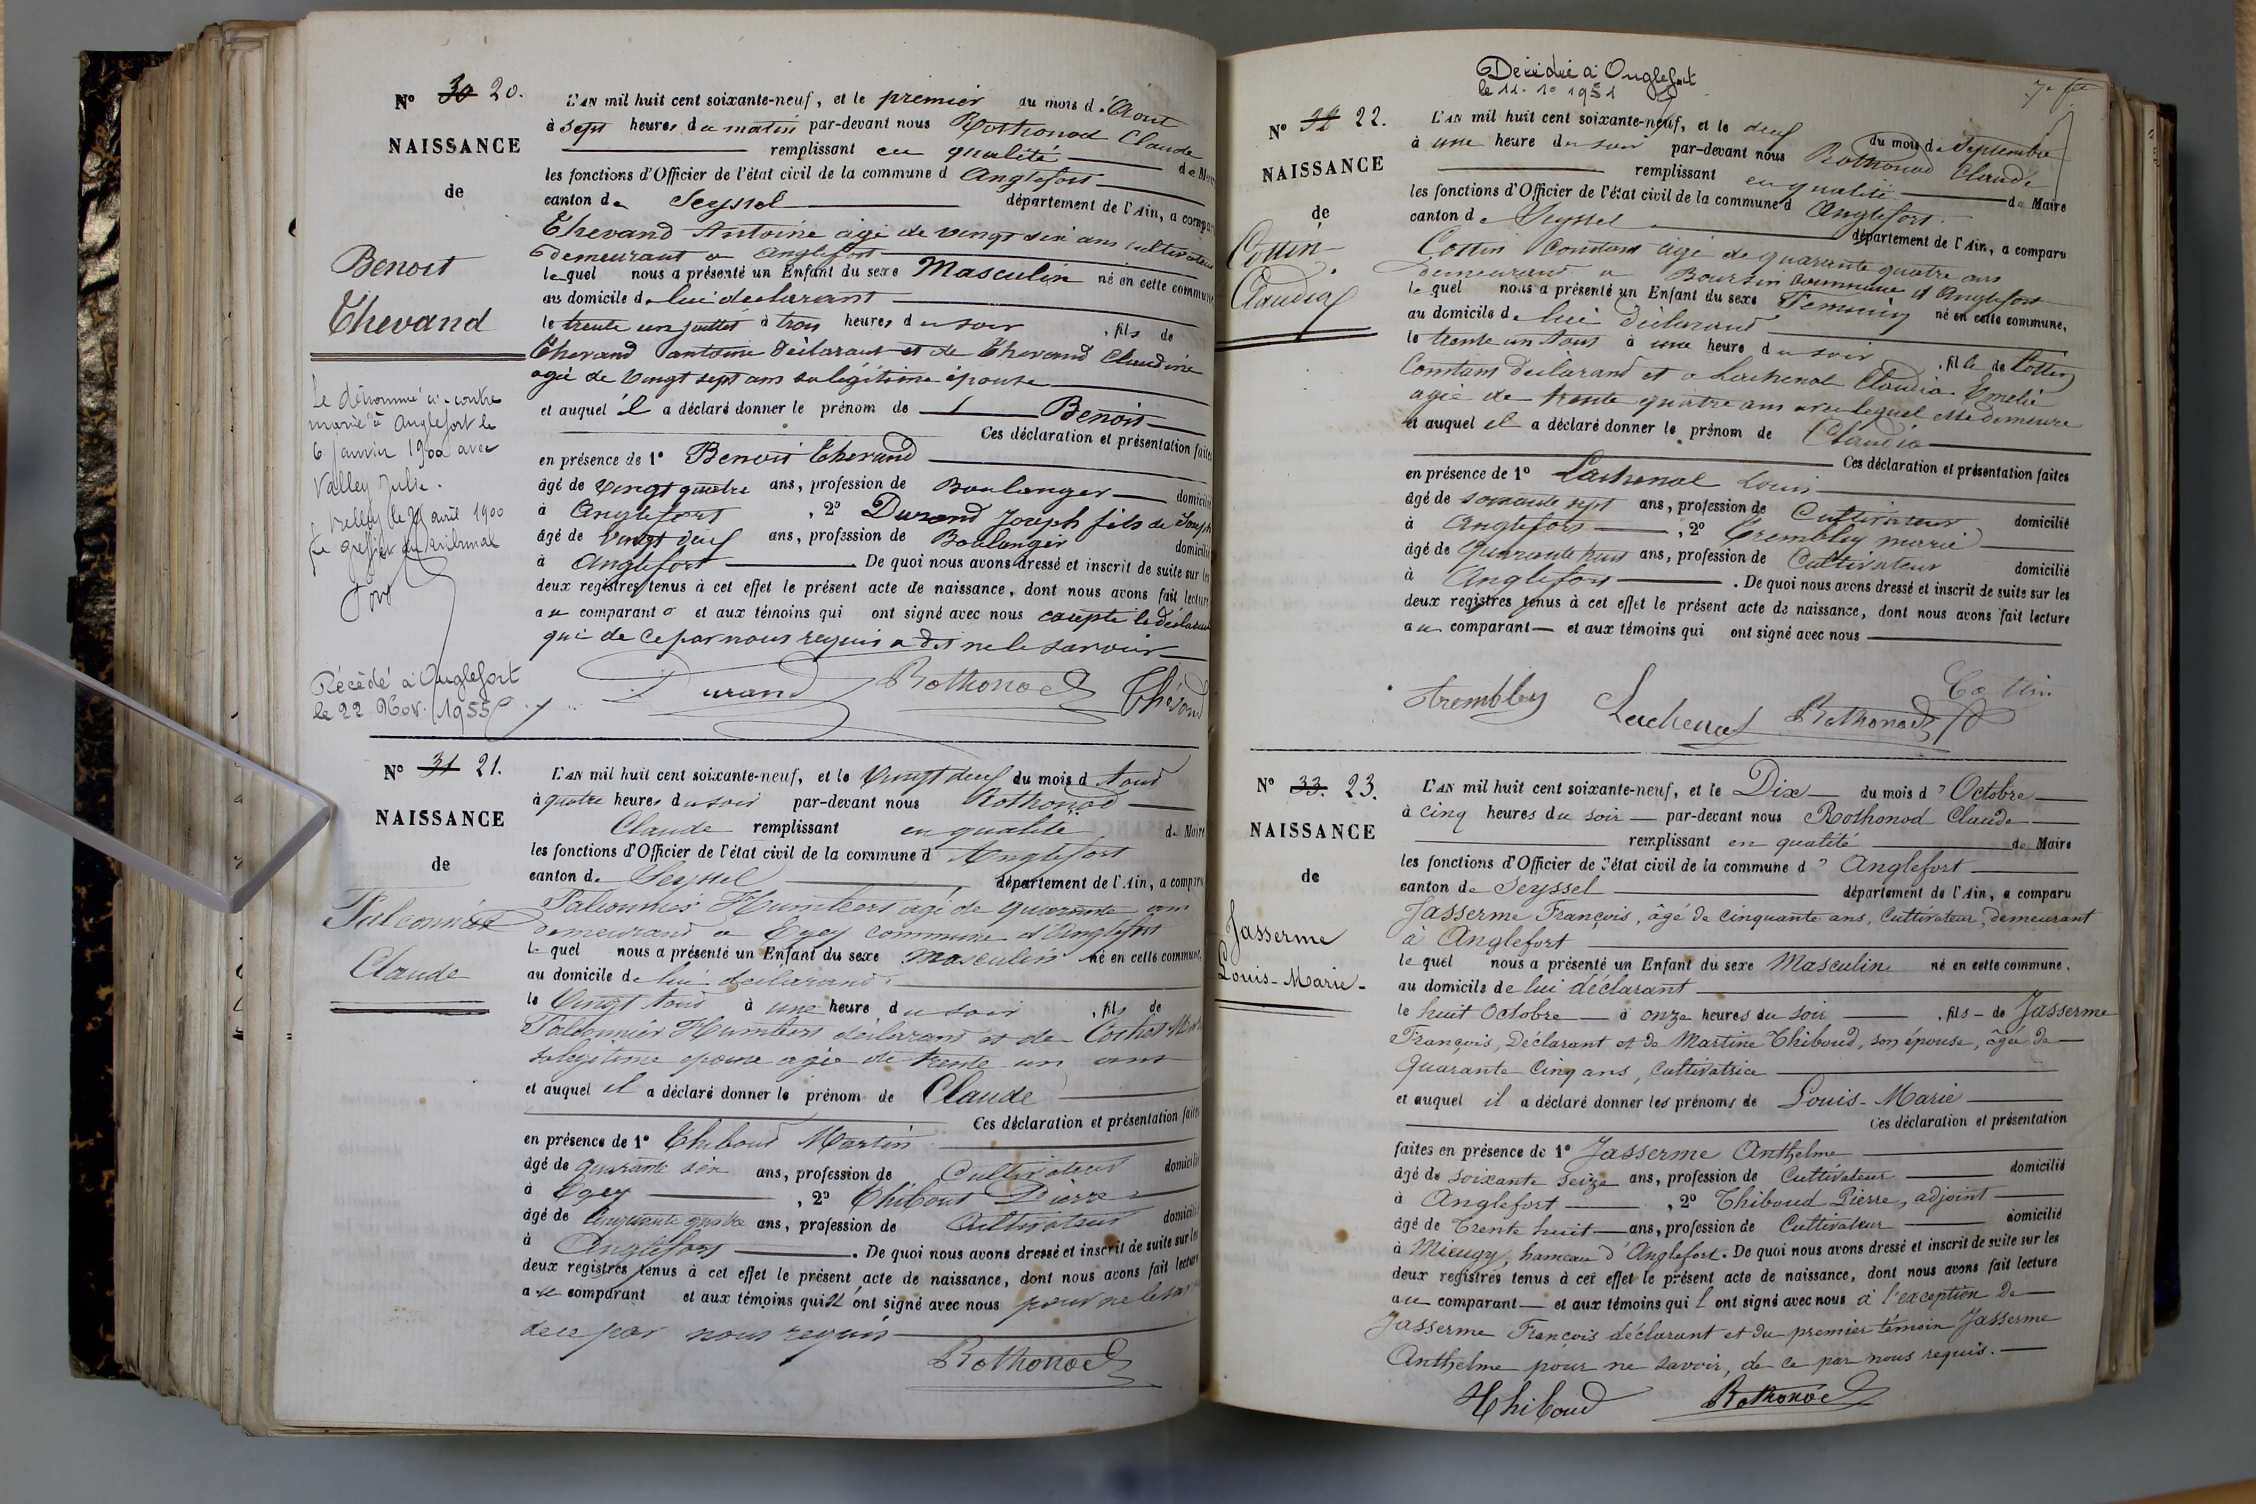 N° 30 20.
NAISSANCE
de
Benoit
Thevand
Le dénommé ci-contre
marié à Anglefort le
6 janvier 1900 avec
Valley Julie.
Belley le 21 avril 1900
Le greffier du tribunal
Décédé à Anglefort
le 22 Nov. 1955
L'AN mil huit cent soixante-neuf, et le premier du mois d'Aout
à sept heures du matin par-devant nous Rothonod Claude
remplissant en qualité de Maire
les fonctions d'Officier de l'état civil de la commune d Anglefort
canton de Seyssel département de l'Ain, a comparu
Thevand Antoine agé de vingt six ans cultivateur
demeurant a Anglefort
lequel nous a présenté un Enfant du sexe Masculin né en cette commune
au domicile de lui déclarant
le trente un juillet à trois heures du soir, fils de
Thevand antoine déclarant et de Thevand Claudine
agée de vingt sept ans sa légitime épouse
et auquel il a déclaré donner le prénom de Benoit
Ces déclaration et présentation faites
en présence de 1° Benoit Thevand
âgé de vingt quatre ans, profession de Boulanger domicilié
à Anglefort, 2° Durand Joseph fils de Joseph
âgé de vingt deux ans, profession de Boulanger domicilié
à Anglefort De quoi nous avons dressé et inscrit de suite sur les
deux registres tenus à cet effet le présent acte de naissance, dont nous avons fait lecture
au comparant et aux témoins qui ont signé avec nous excepté le déclarant
qui de ce par nous requis a dit ne le savoir
Durand Rothonod Thévand
N° 31 21.
NAISSANCE
de
Falconnier
Claude
L'AN mil huit cent soixante-neuf, et le Vingt deux du mois d Aout
à quatre heures du soir par-devant nous Rothonod
Claude remplissant en qualité de Maire
les fonctions d'Officier de l'état civil de la commune d'Anglefort
canton de Seyssel département de l'Ain, a comparu
Falconnier Humbert agé de quarante ans
demeurant a Egey commune d'Anglefort
lequel nous a présenté un Enfant du sexe masculin né en cette commune,
au domicile de lui déclarant
le Vingt Aout à une heure du soir, fils de
Falconnier Humbert déclarant et de
sa légitime épouse agée de trente un ans
et auquel il a déclaré donner le prénom de Claude
Ces déclaration et présentation faites
en présence de 1° Thiboud Martin
âgé de quarante six ans, profession de Cultivateur domicilié
à Egey, 2° Thiboud Pierre
âgé de Cinquante quatre ans, profession de Cultivateur domicilié
à Anglefort. De quoi nous avons dressé et inscrit de suite sur les
deux registres tenus à cet effet le présent acte de naissance, dont nous avons fait lecture
au comparant et aux témoins qui n'ont signé avec nous pour ne le savoir
de ce par nous requis
Rothonod
Décédée à Anglefort
le 11. 10 1951
7e ft
N° 32 22.
NAISSANCE
de
Cottin
Claudia
L'AN mil huit cent soixante-neuf, et le deux du mois de Septembre
à une heure du soir par-devant nous Rothonod Claude
remplissant en qualité de Maire
les fonctions d'Officier de l'état civil de la commune d Anglefort
canton de Seyssel département de l'Ain, a comparu
Cottin Constant agé de quarante quatre ans
demeurant a Boursin commune d'Anglefort
lequel nous a présenté un Enfant du sexe Feminin né en cette commune,
au domicile de lui déclarant
le trente un Aout à une heure du soir, fille de Cottin
Constant déclarant et a Lachenal Claudia Emelie
agée de trente quatre ans avec lequel elle demeure
et auquel il a déclaré donner le prénom de Claudia
Ces déclaration et présentation faites
en présence de 1° Lachenal Louis
âgé de soixante sept ans, profession de Cultivateur domicilié
à Anglefort, 2° Trembley marie
âgé de Quarante huit ans, profession de Cultivateur domicilié
à Anglefort. De quoi nous avons dressé et inscrit de suite sur les
deux registres tenus à cet effet le présent acte de naissance, dont nous avons fait lecture
au comparant et aux témoins qui ont signé avec nous
Trembley Lachenal Rothonod Cottin
N° 33. 23.
NAISSANCE
de
Jasserme
Louis-Marie
L'AN mil huit cent soixante-neuf, et le Dix du mois d'Octobre
à cinq heures du soir par-devant nous Rothonod Claude
remplissant en qualité de Maire
les fonctions d'Officier de l'état civil de la commune d'Anglefort
canton de Seyssel département de l'Ain, a comparu
Jasserme François, âgé de cinquante ans, Cultivateur, demeurant
à Anglefort
lequel nous a présenté un Enfant du sexe Masculin né en cette commune,
au domicile de lui déclarant
le huit Octobre à onze heures du soir, fils de Jasserme
François, Déclarant et de Martine Thiboud, son épouse, âgée de
Quarante Cinq ans, Cultivatrice
et auquel il a déclaré donner les prénoms de Louis-Marie
Ces déclaration et présentation
faites en présence de 1° Jasserme Anthelme
âgé de soixante seize ans, profession de Cultivateur domicilié
à Anglefort, 2° Thiboud Pierre, adjoint
âgé de Trente huit ans, profession de Cultivateur domicilié
à Mieugy, hameau d'Anglefort. De quoi nous avons dressé et inscrit de suite sur les
deux registres tenus à cet effet le présent acte de naissance, dont nous avons fait lecture
au comparant et aux témoins qui l'ont signé avec nous à l'exception de
Jasserme François déclarant et du premier témoin Jasserme
Anthelme pour ne savoir, de ce par nous requis.
Thiboud Rothonod